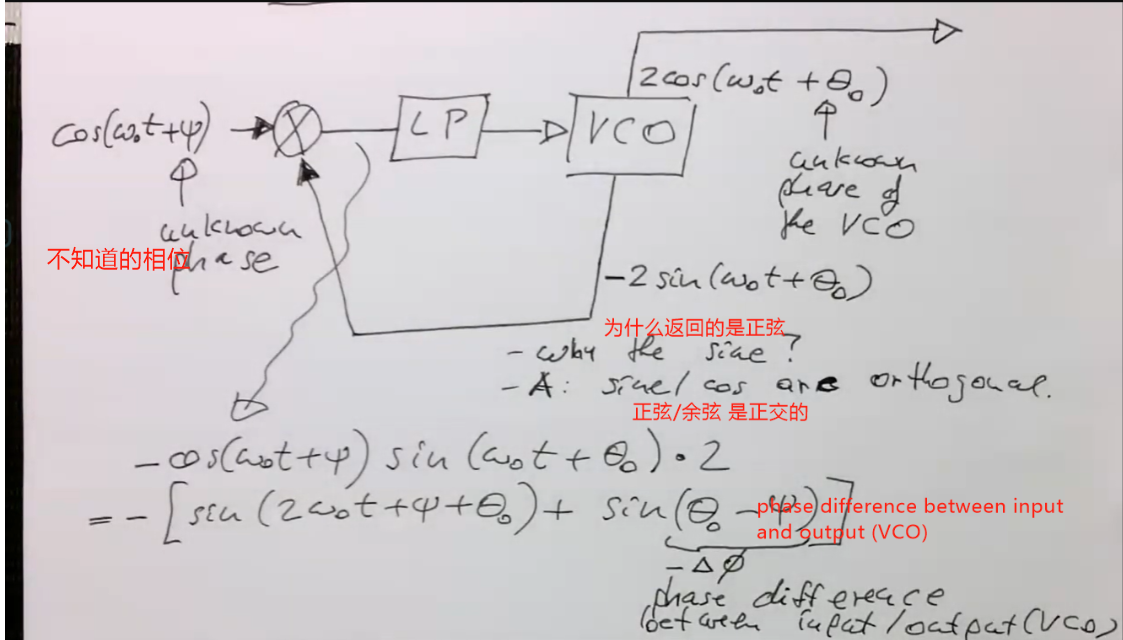 2cos(ω₀t + θ₀)
cos(ω₀t+φ)
LP
VCO
unknown
phase of
the VCO
unknown
phase
不知道的相位
-2 sin(ω₀t+θ₀)
为什么返回的是正弦
- why the sine?
- A: sine/cos are orthogonal.
正弦/余弦 是正交的
-cos(ω₀t+φ) sin(ω₀t+θ₀)·2
= -[sin(2ω₀t+φ+θ₀)+ sin(θ₀-φ)]
phase difference between input
and output (VCO)
-Δφ
phase difference
between input/output(VCO)